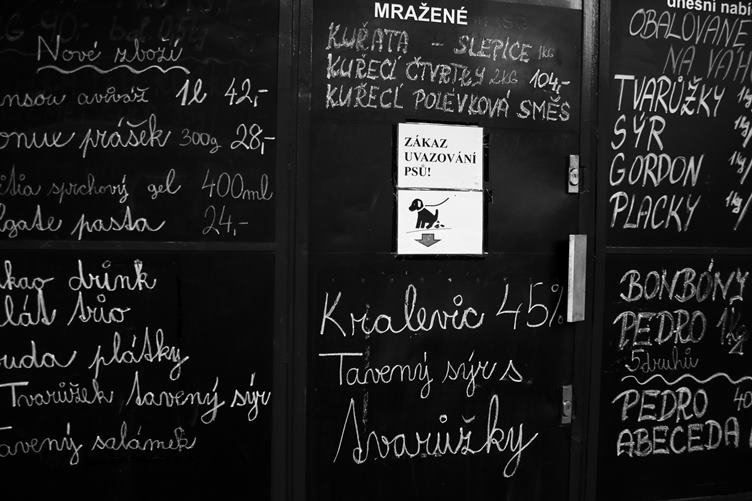 Nové zboží
avivaž 1l 42,-
prášek 300g 28,-
sprchový gel 400ml
pasta 24,-
drink
trio
plátky
Tvarůžek tavený sýr
Tavený salámek
MRAŽENÉ
KUŘATA - SLEPICE 1KG
KUŘECÍ ČTVRTKY 2KG 104,-
KUŘECÍ POLÉVKOVÁ SMĚS
ZÁKAZ
UVAZOVÁNÍ
PSŮ!
Kralevic 45%
Tavený sýr s
tvarůžky
dnešní nabí
OBALOVANÉ
NA VÁH
TVARŮŽKY 1kg
SÝR 1kg
GORDON 1kg
PLACKY 1kg
BONBÓNY
PEDRO 1kg
5druhů
PEDRO 40
ABECEDA